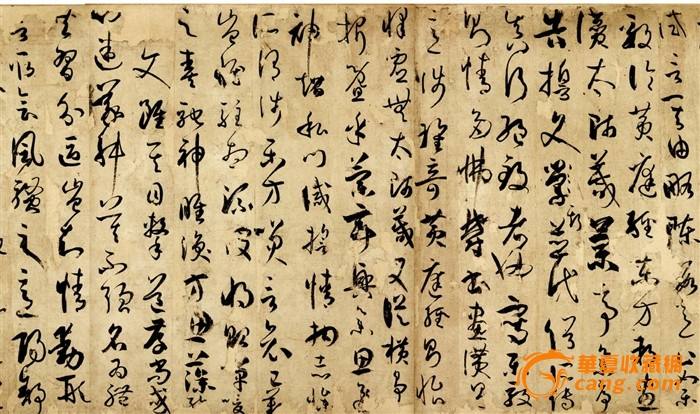 試言其由略陳數意止如樂
毅論黃庭經東方朔畫
讚太師箴蘭亭集序
告誓文斯並代俗所傳
真行絕致者也寫樂毅
則情多怫鬱書畫讚則
意涉瑰奇黃庭經則怡
懌虛無太師箴又從橫爭
折暨乎蘭亭興集思逸
神超私門誡誓情拘志慘
所謂涉樂方笑言哀已歎
豈惟駐想流波將貽嘽噯
之奏馳神睢渙方思藻繪
文雖其目擊道存尚或
心迷議舛莫不強名為體
共習分區豈知情動形
言取會風騷之意陽舒
华夏收藏网
cang.com